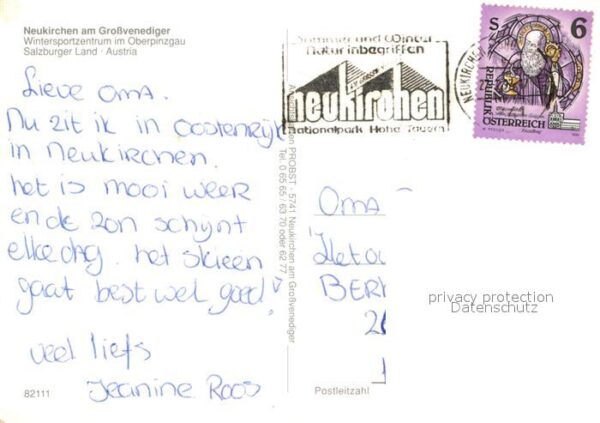 Neukirchen am Großvenediger
Wintersportzentrum im Oberpinzgau
Salzburger Land · Austria
Lieve OMA.
Nu zit ik in Oostenrijk
in Neukirchen.
het is mooi weer
en de zon schijnt
elke dag. het skieen
gaat best wel goed!
veel liefs
Jeanine Roos
82111
PROBST · 5741 Neukirchen am Großvenediger
Tel. 0 65 65 / 63 70 oder 62 77
Sommer und Winter
Natur inbegriffen
neukirchen
Nationalpark Hohe Tauern
NEUKIRCHEN
S 6
REPUBLIK
ÖSTERREICH
OMA
BER
privacy protection
Datenschutz
Postleitzahl